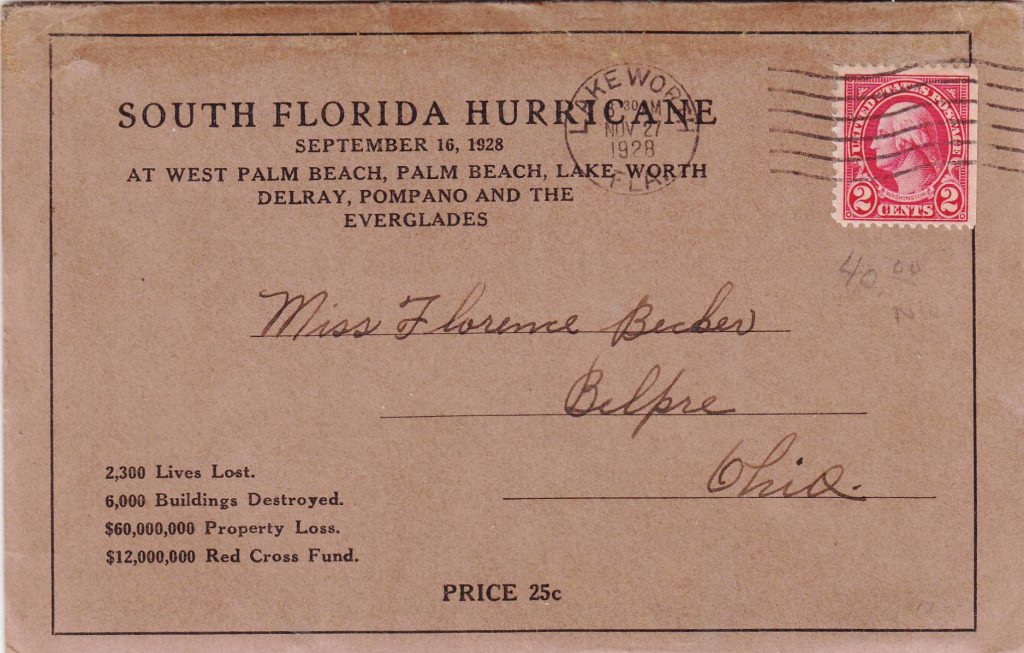 SOUTH FLORIDA HURRICANE
SEPTEMBER 16, 1928
AT WEST PALM BEACH, PALM BEACH, LAKE WORTH
DELRAY, POMPANO AND THE
EVERGLADES
LAKE WORTH
30 AM
NOV 27
1928
FLA.
UNITED STATES POSTAGE
WASHINGTON
2 CENTS 2
40.00
Miss Florence Becker
Belpre
Ohio.
2,300 Lives Lost.
6,000 Buildings Destroyed.
$60,000,000 Property Loss.
$12,000,000 Red Cross Fund.
PRICE 25c